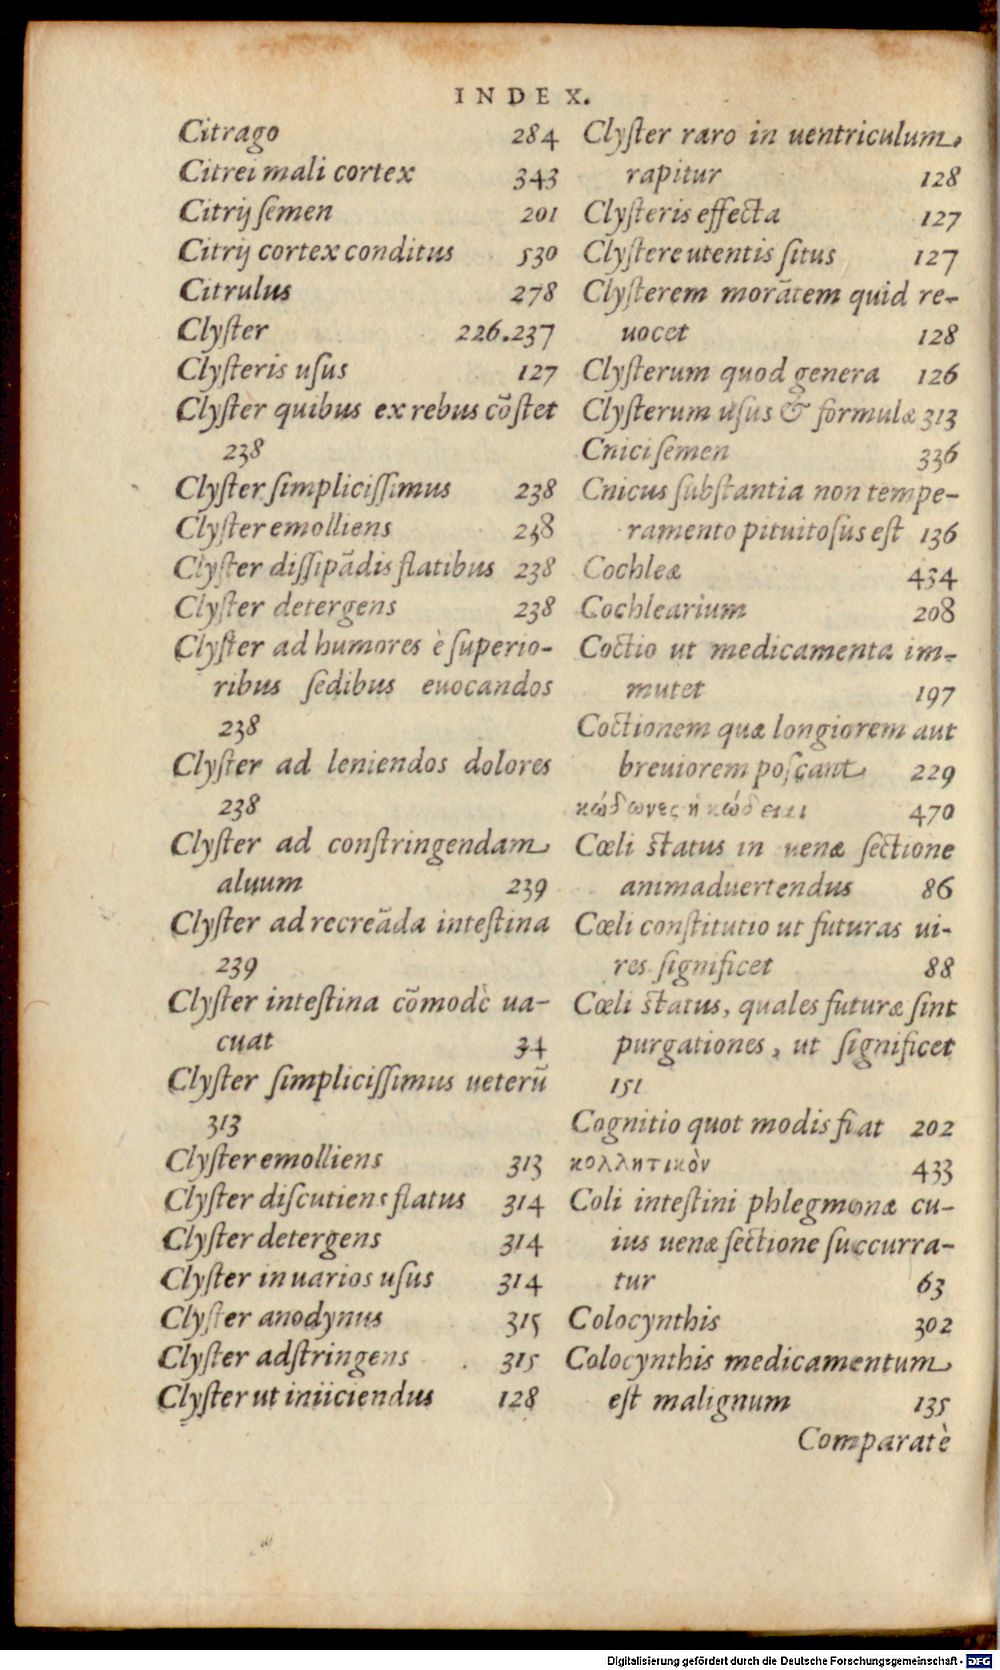 INDEX.
Citrago 284
Citrei mali cortex 343
Citrij ſemen 201
Citrij cortex conditus 530
Citrulus 278
Clyſter 226.237
Clyſteris uſus 127
Clyſter quibus ex rebus cõſtet
238
Clyſter ſimpliciſſimus 238
Clyſter emolliens 238
Clyſter diſſipãdis flatibus 238
Clyſter detergens 238
Clyſter ad humores è ſuperio-
ribus ſedibus euocandos
238
Clyſter ad leniendos dolores
238
Clyſter ad conſtringendam
aluum 239
Clyſter ad recreãda inteſtina
239
Clyſter inteſtina cõmodè ua-
cuat 34
Clyſter ſimpliciſſimus ueterũ
313
Clyſter emolliens 313
Clyſter diſcutiens flatus 314
Clyſter detergens 314
Clyſter in uarios uſus 314
Clyſter anodynus 315
Clyſter adſtringens 315
Clyſter ut iniiciendus 128
Clyſter raro in uentriculum
rapitur 128
Clyſteris effecta 127
Clyſtere utentis ſitus 127
Clyſterem morãtem quid re-
uocet 128
Clyſterum quod genera 126
Clyſterum uſus & formulæ 313
Cnici ſemen 336
Cnicus ſubſtantia non tempe-
ramento pituitoſus eſt 136
Cochleæ 434
Cochlearium 208
Coctio ut medicamenta im-
mutet 197
Coctionem quæ longiorem aut
breuiorem poſcant 229
κώδωνες ἢ κώδειαι 470
Cœli ſtatus in uenæ ſectione
animaduertendus 86
Cœli conſtitutio ut futuras ui-
res ſignificet 88
Cœli ſtatus, quales futuræ ſint
purgationes, ut ſignificet
151
Cognitio quot modis fiat 202
κολλητικὸν 433
Coli inteſtini phlegmonæ cu-
ius uenæ ſectione ſuccurra-
tur 63
Colocynthis 302
Colocynthis medicamentum
eſt malignum 135
Comparatè
Digitalisierung gefördert durch die Deutsche Forschungsgemeinschaft - DFG